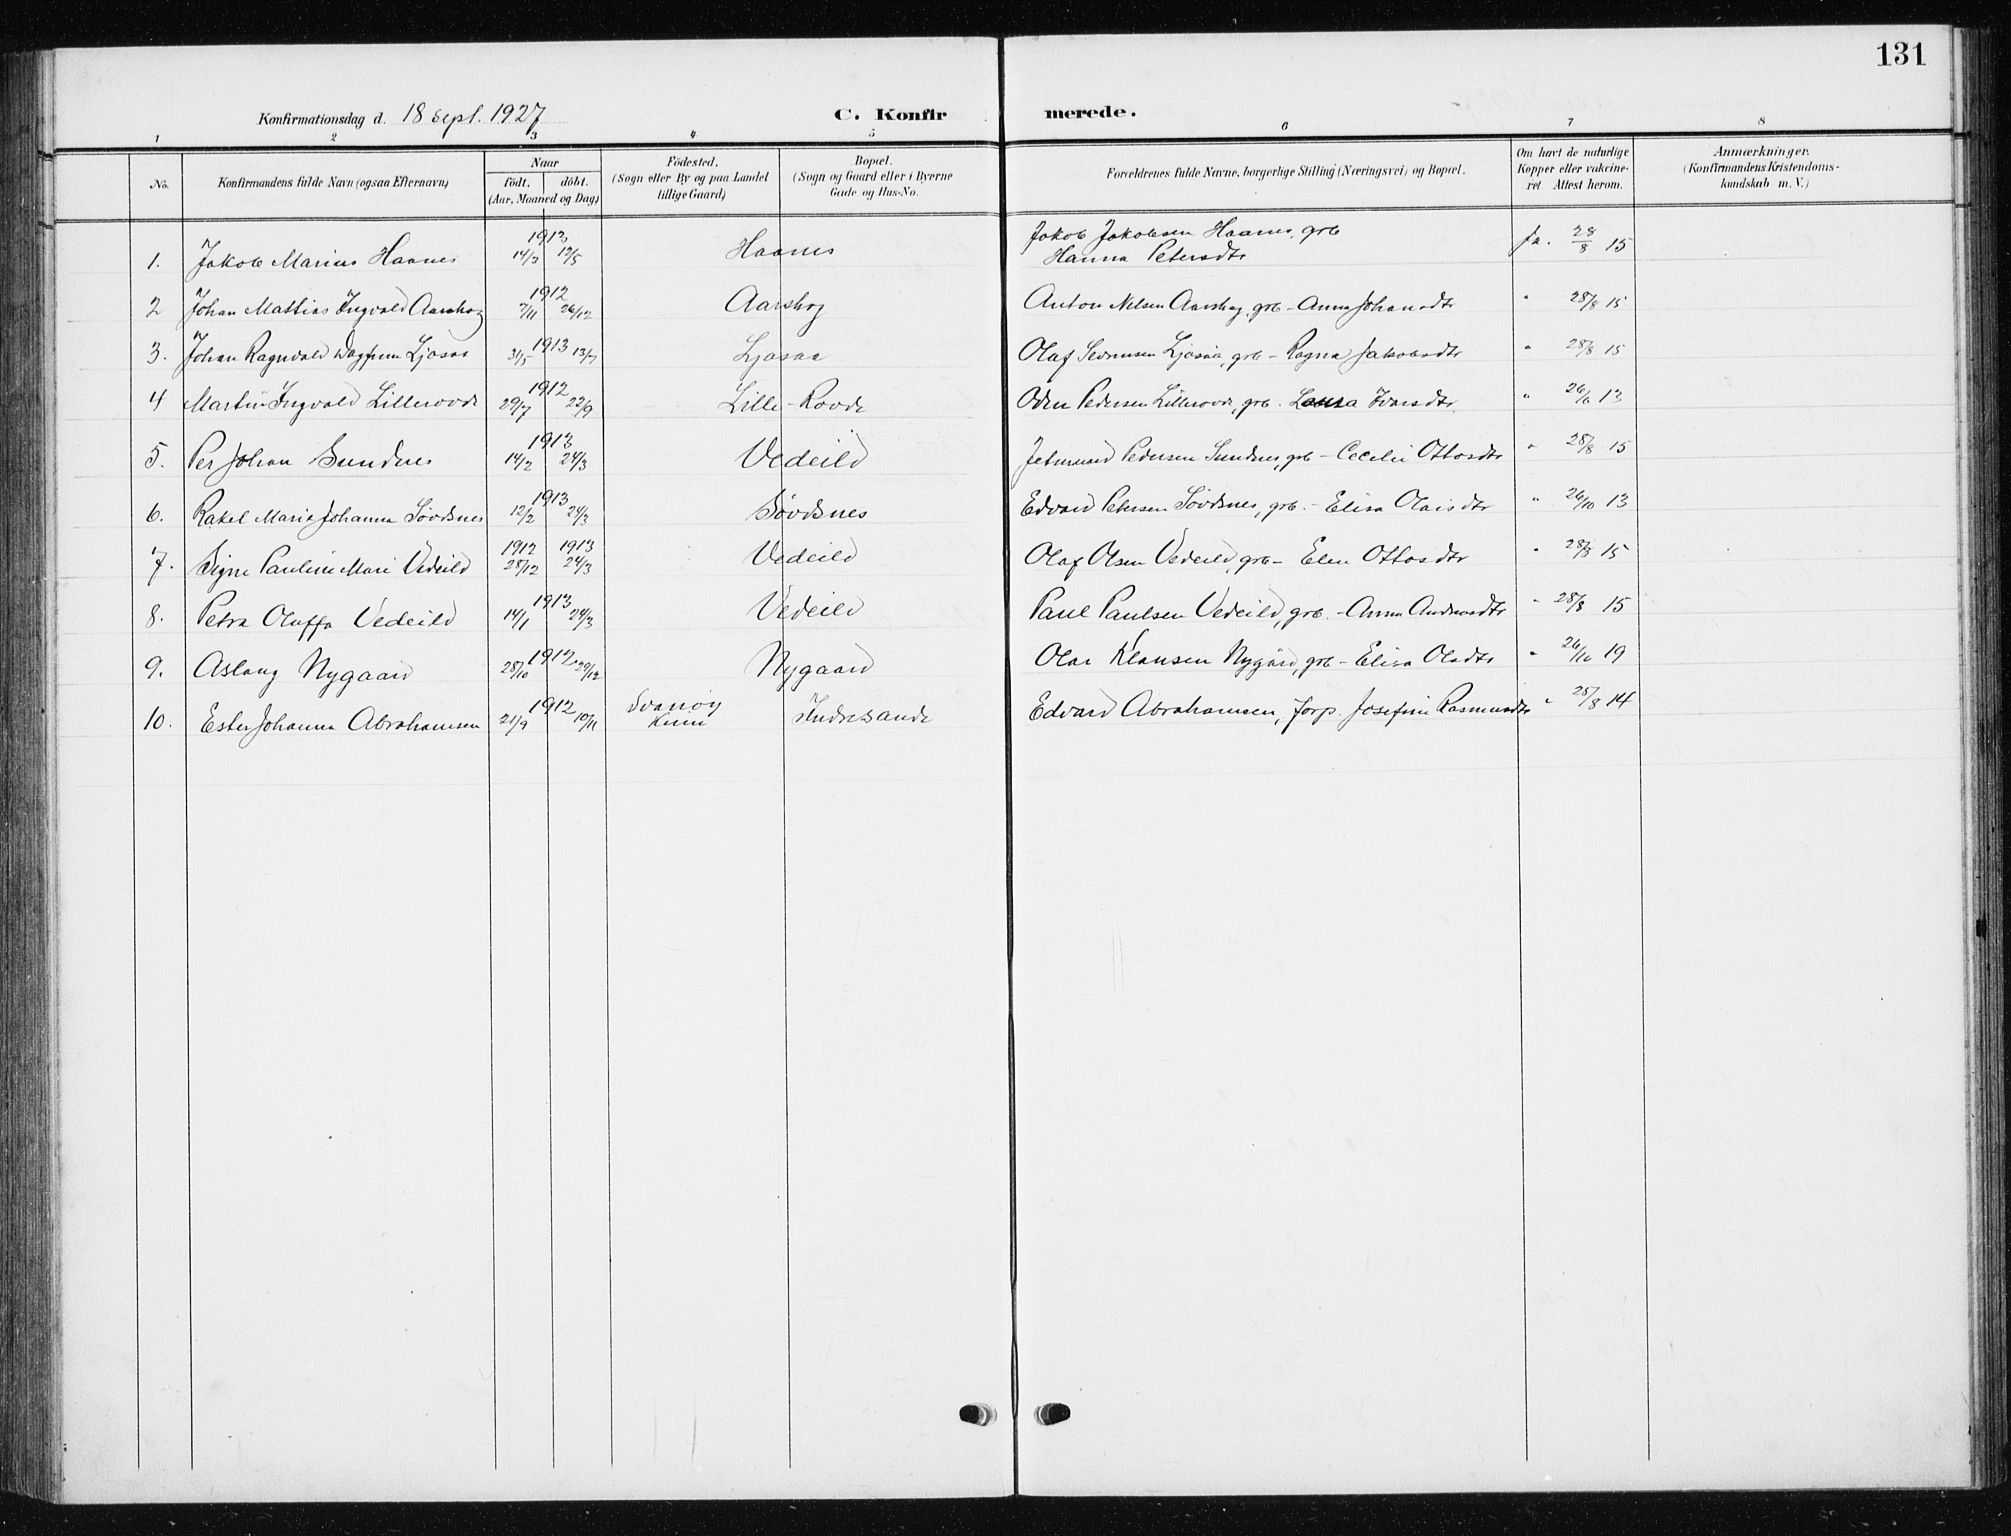 131
Konfirmationsdag d. 18 Sept. 1927 C. Konfirmerede.
1 2 3 4 5 6 7 8
No. Konfirmandens fulde Navn (ogsaa Efternavn) Naar født. døbt. (Aar, Maaned og Dag) Födested. (Sogn eller By og paa Landet tillige Gaard) Bopæl. (Sogn og Gaard eller i Byerne Gade og Hus-No. Forældrenes fulde Navne, borgerlige Stilling (Næringsvei) og Bopæl. Om havt de naturlige Kopper eller vakcineret Attest herom. Anmærkninger. (Konfirmandens Kristendomskundskab m. V.)
1. Jakob Marius Haanes 1913 14/3 12/5 Haanes Jakob Jakobsen Haanes, grb. Hanna Petersdtr ja. 28/8 15
2 Johan Mattias Ingvald Aarskog 1912 7/11 26/12 Aarskog Anton Nilsen Aarskog, grb - Anna Johansdtr " 28/8 15
3. Johan Ragnvald Dagfinn Ljosaa 1913 31/5 13/7 Ljosaa Olaf Sevrinsen Ljosaa, grb - Ragna Jakobsdtr " 28/8 15
4 Martin Ingvald Lillerovde 1912 29/7 22/9 Lille-Rovde Oden Pedersen Lillerovde, grb. Laura Ivarsdtr. " 26/6 13
5. Per Johan Sundnes 1913 14/2 24/3 Vedeild Pedersen Sundnes, grb - Cecilie Ottosdtr " 28/8 15
6. Rakel Marie Johanna Søvdsnes 1913 12/2 24/3 Søvdsnes Edvard Petersen Søvdsnes, grb. - Elisa Olaisdtr " 26/10 13
7. Signe Pauline Marie Vedeild 1912 28/12 1913 24/3 Vedeild Olaf Olsen Vedeild, grb - Elen Ottosdtr " 28/8 15
8. Petra Oluffa Vedeild 1913 14/1 24/3 Vedeild Paul Paulsen Vedeild, grb. - Anna Andreasdtr " 28/8 15
9. Aslaug Nygaard 1912 28/10 29/12 Nygaard Olai Klausen Nygård, grb - Elisa Olsdtr " 26/10 19
10. Ester Johanna Abrahamsen 1912 21/9 10/11 Svanøy Kinn Indresande Edvard Abrahamsen, forp. Josefine Rasmusdtr " 25/8 14